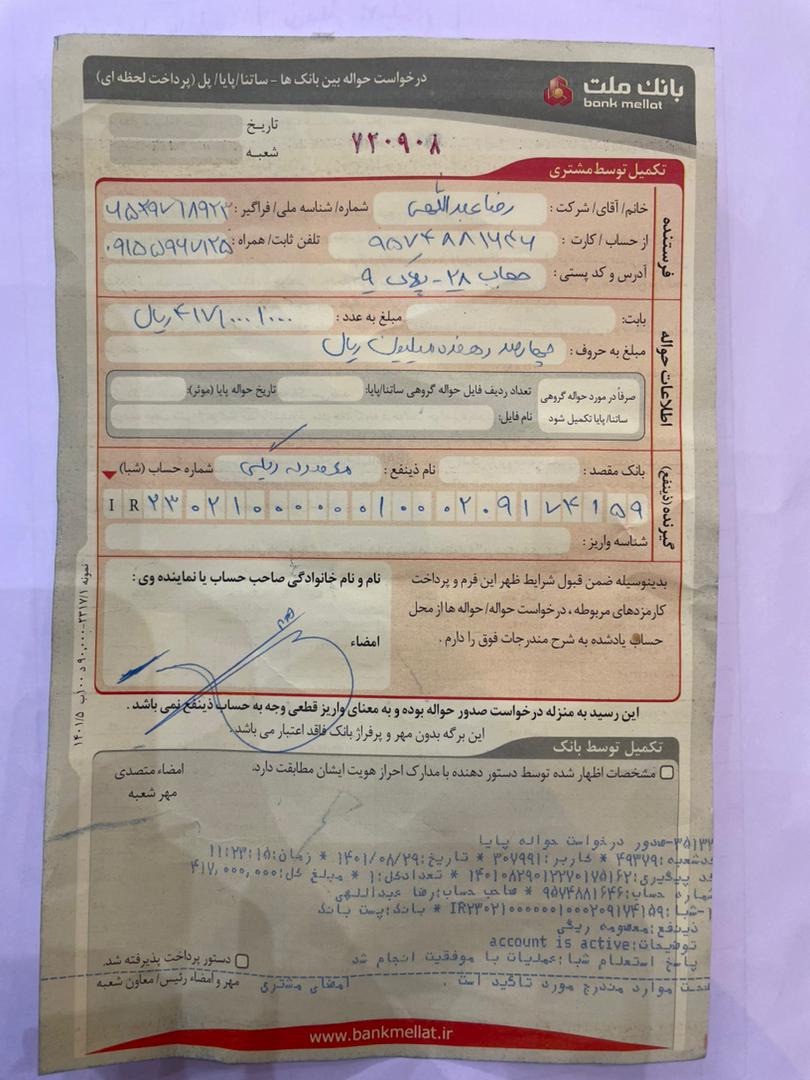 بانک ملت
bank mellat
درخواست حواله بین بانک ها - ساتنا/پایا/ پل (پرداخت لحظه ای)
تاریخ
شعبه
۷۲۰۹۰۸
تکمیل توسط مشتری
فرستنده
خانم/ آقای/ شرکت : رضا عبداللهی شماره/ شناسه ملی/ فراگیر :
از حساب / کارت : ۹۵۷۴۸۸۱۶۴۶ تلفن ثابت/ همراه : ۰۹۱۵۵۹۶۷۱۲۵
آدرس و کد پستی : ۲۸ - پلاک ۹
اطلاعات حواله
بابت: مبلغ به عدد : ۴۱۷/۰۰۰/۰۰۰ ریال
مبلغ به حروف : چهارصد و هفده میلیون ریال
صرفاً در مورد حواله گروهی ساتنا/ پایا تکمیل شود
تعداد ردیف فایل حواله گروهی ساتنا/پایا: تاریخ حواله پایا (موثر):
نام فایل:
گیرنده (ذینفع)
بانک مقصد : نام ذینفع : معصومه ریگی شماره حساب (شبا)
IR ۲۳۰۲۱۰۰۰۰۰۰۱۰۰۰۲۰۹۱۷۴۱۵۹
شناسه واریز :
بدینوسیله ضمن قبول شرایط ظهر این فرم و پرداخت
کارمزدهای مربوطه ، درخواست حواله/ حواله ها از محل
حساب یادشده به شرح مندرجات فوق را دارم .
نام و نام خانوادگی صاحب حساب یا نماینده وی :
امضاء
این رسید به منزله درخواست صدور حواله بوده و به معنای واریز قطعی وجه به حساب ذینفع نمی باشد .
این برگه بدون مهر و پرفراژ بانک فاقد اعتبار می باشد .
تکمیل توسط بانک
مشخصات اظهار شده توسط دستور دهنده با مدارک احراز هویت ایشان مطابقت دارد.
امضاء متصدی
مهر شعبه
صدور درخواست حواله پایا
کدشعبه:۴۹۳۷۹ * کاربر:۳۰۷۹۹۱ * تاریخ:۱۴۰۱/۰۸/۲۹ * زمان:۱۱:۲۳:۱۵
کد پیگیری:۱۴۰۱۰۸۲۹۰۱۲۲۷۰۱۷۵۱۶۲ * تعدادکل:۱ * مبلغ کل:۴۱۷,۰۰۰,۰۰۰
شماره حساب:۹۵۷۴۸۸۱۶۴۶ * صاحب حساب:رضا عبداللهی
۱-شبا:IR۲۳۰۲۱۰۰۰۰۰۰۱۰۰۰۲۰۹۱۷۴۱۵۹ * بانک:پست بانک
ذینفع:معصومه ریگی
توضیحات:account is active
پاسخ استعلام شبا:عملیات با موفقیت انجام شد
دستور پرداخت پذیرفته شد.
صحت موارد مندرج مورد تائید است . امضای مشتری
مهر و امضاء رئیس/ معاون شعبه
www.bankmellat.ir